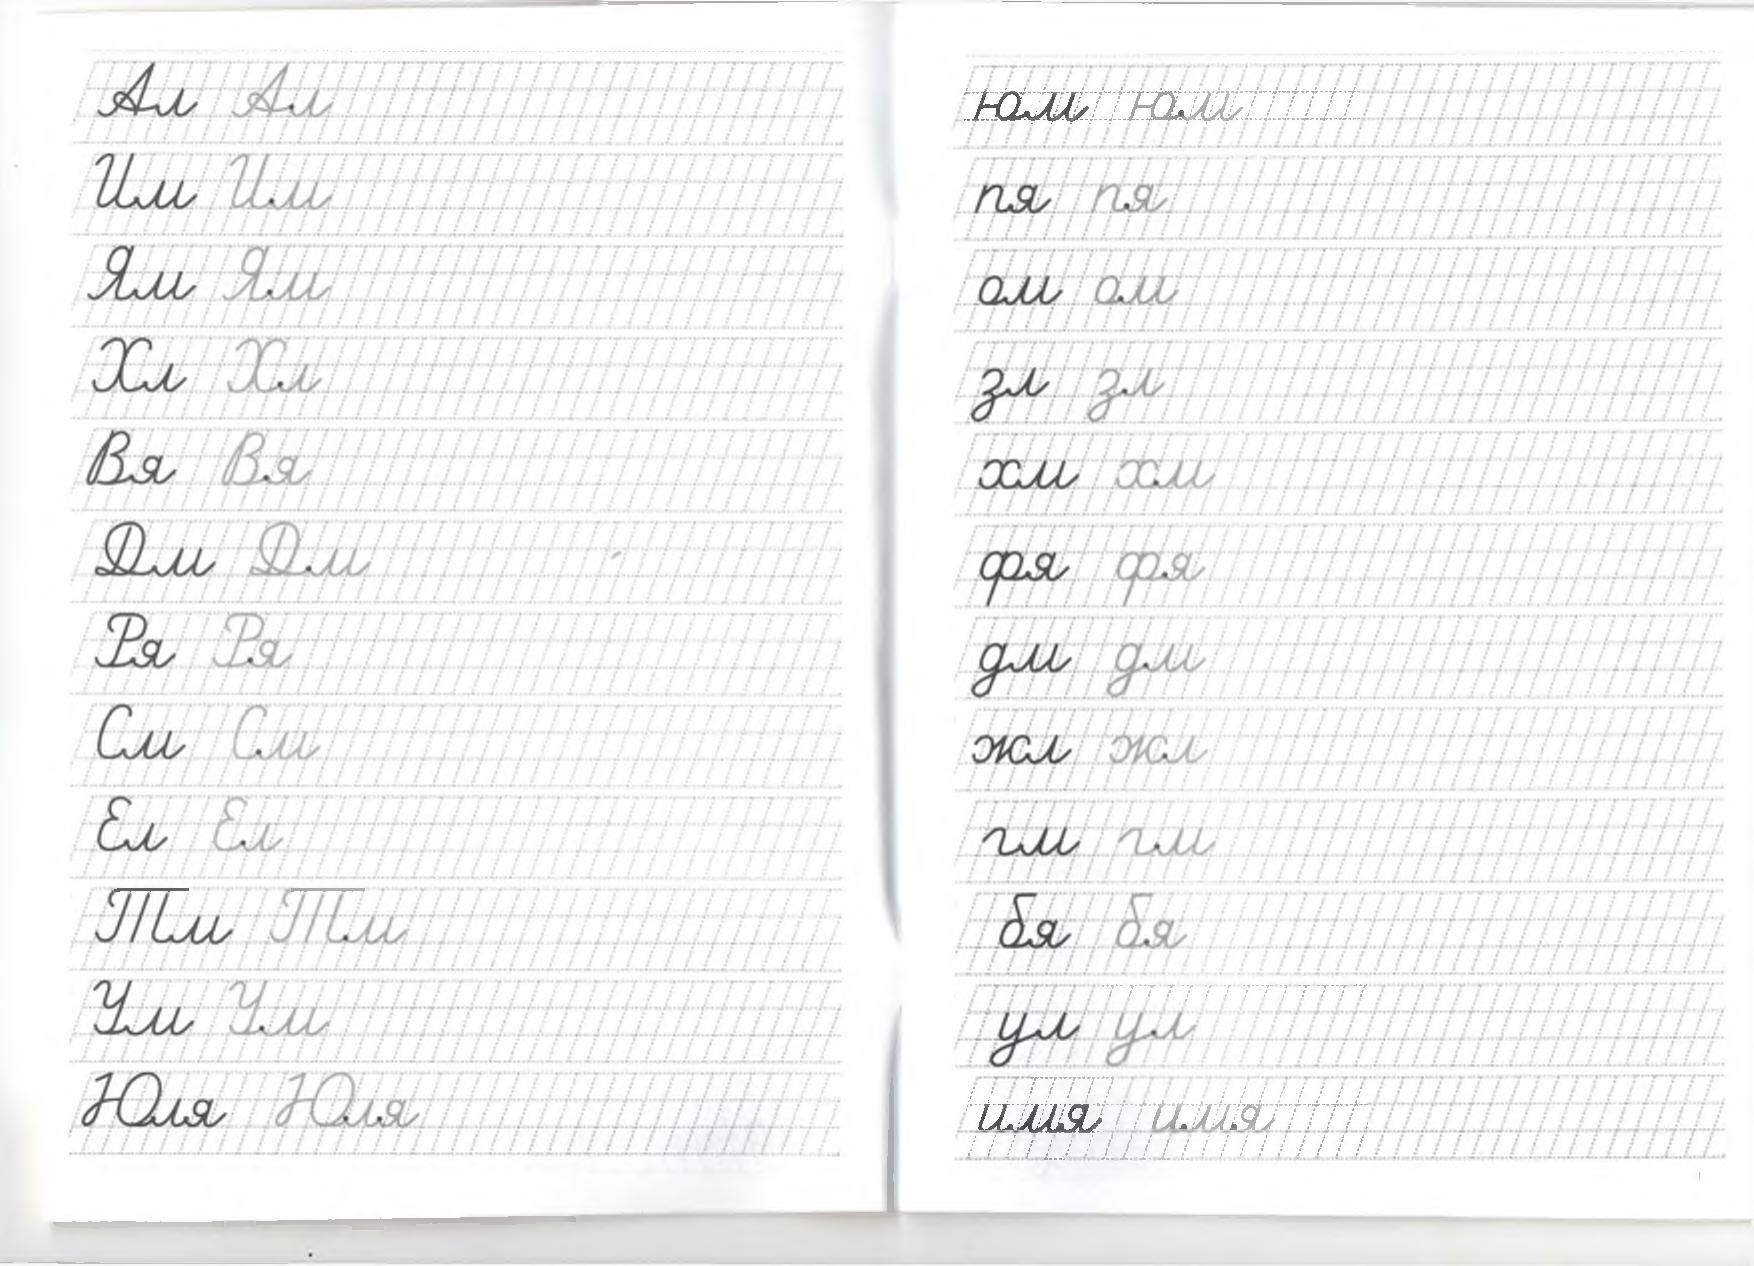 Ал Ал
Им Им
Ям Ям
Хл Хл
Вя Вя
Дм Дм
Ря Ря
См См
Ел Ел
Тм Тм
Ум Ум
Юля Юля
юм юм
пя пя
ом ом
зл зл
хм хм
фя фя
дм дм
жл жл
гм гм
бя бя
ул ул
имя имя